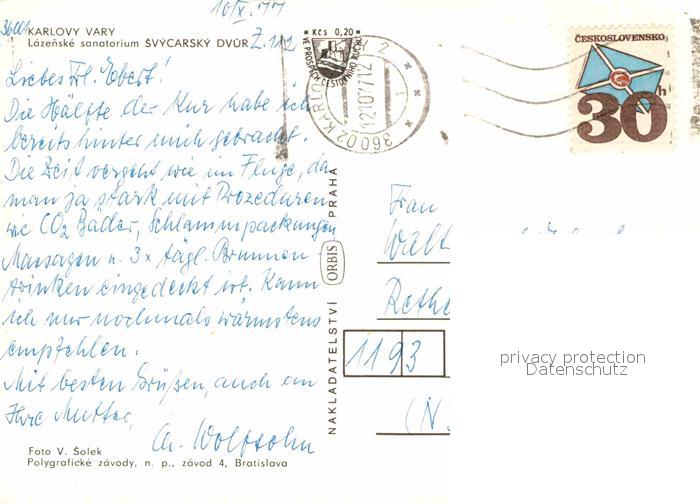 10/X. 77
36001
KARLOVY VARY
Lázeňské sanatorium ŠVÝCARSKÝ DVŮR Z. 112
Liebes Frl. Ebert!
Die Hälfte der Kur habe ich
bereits hinter mich gebracht.
Die Zeit vergeht wie im Fluge, da
man ja stark mit Prozeduren
wie CO2 Bäder, Schlammpackungen
Massagen u. 3x tägl. Brunnen-
trinken eingedeckt ist. Kann
ich nur nochmals wärmstens
empfehlen.
Mit besten Grüßen, auch an
Ihre Mutter,
Ch. Wolfsohn
Foto V. Šolek
Polygrafické závody, n. p., závod 4, Bratislava
NAKLADATELSTVÍ ORBIS PRAHA
Kčs 0,20
VE PROSPĚCH CESTOVNÍHO RUCHU
36002 KARLOVY VARY 2
12.10.77-12
1
ČESKOSLOVENSKO
30h
Frau
Walt
Rethe
1193
(N.
privacy protection
Datenschutz